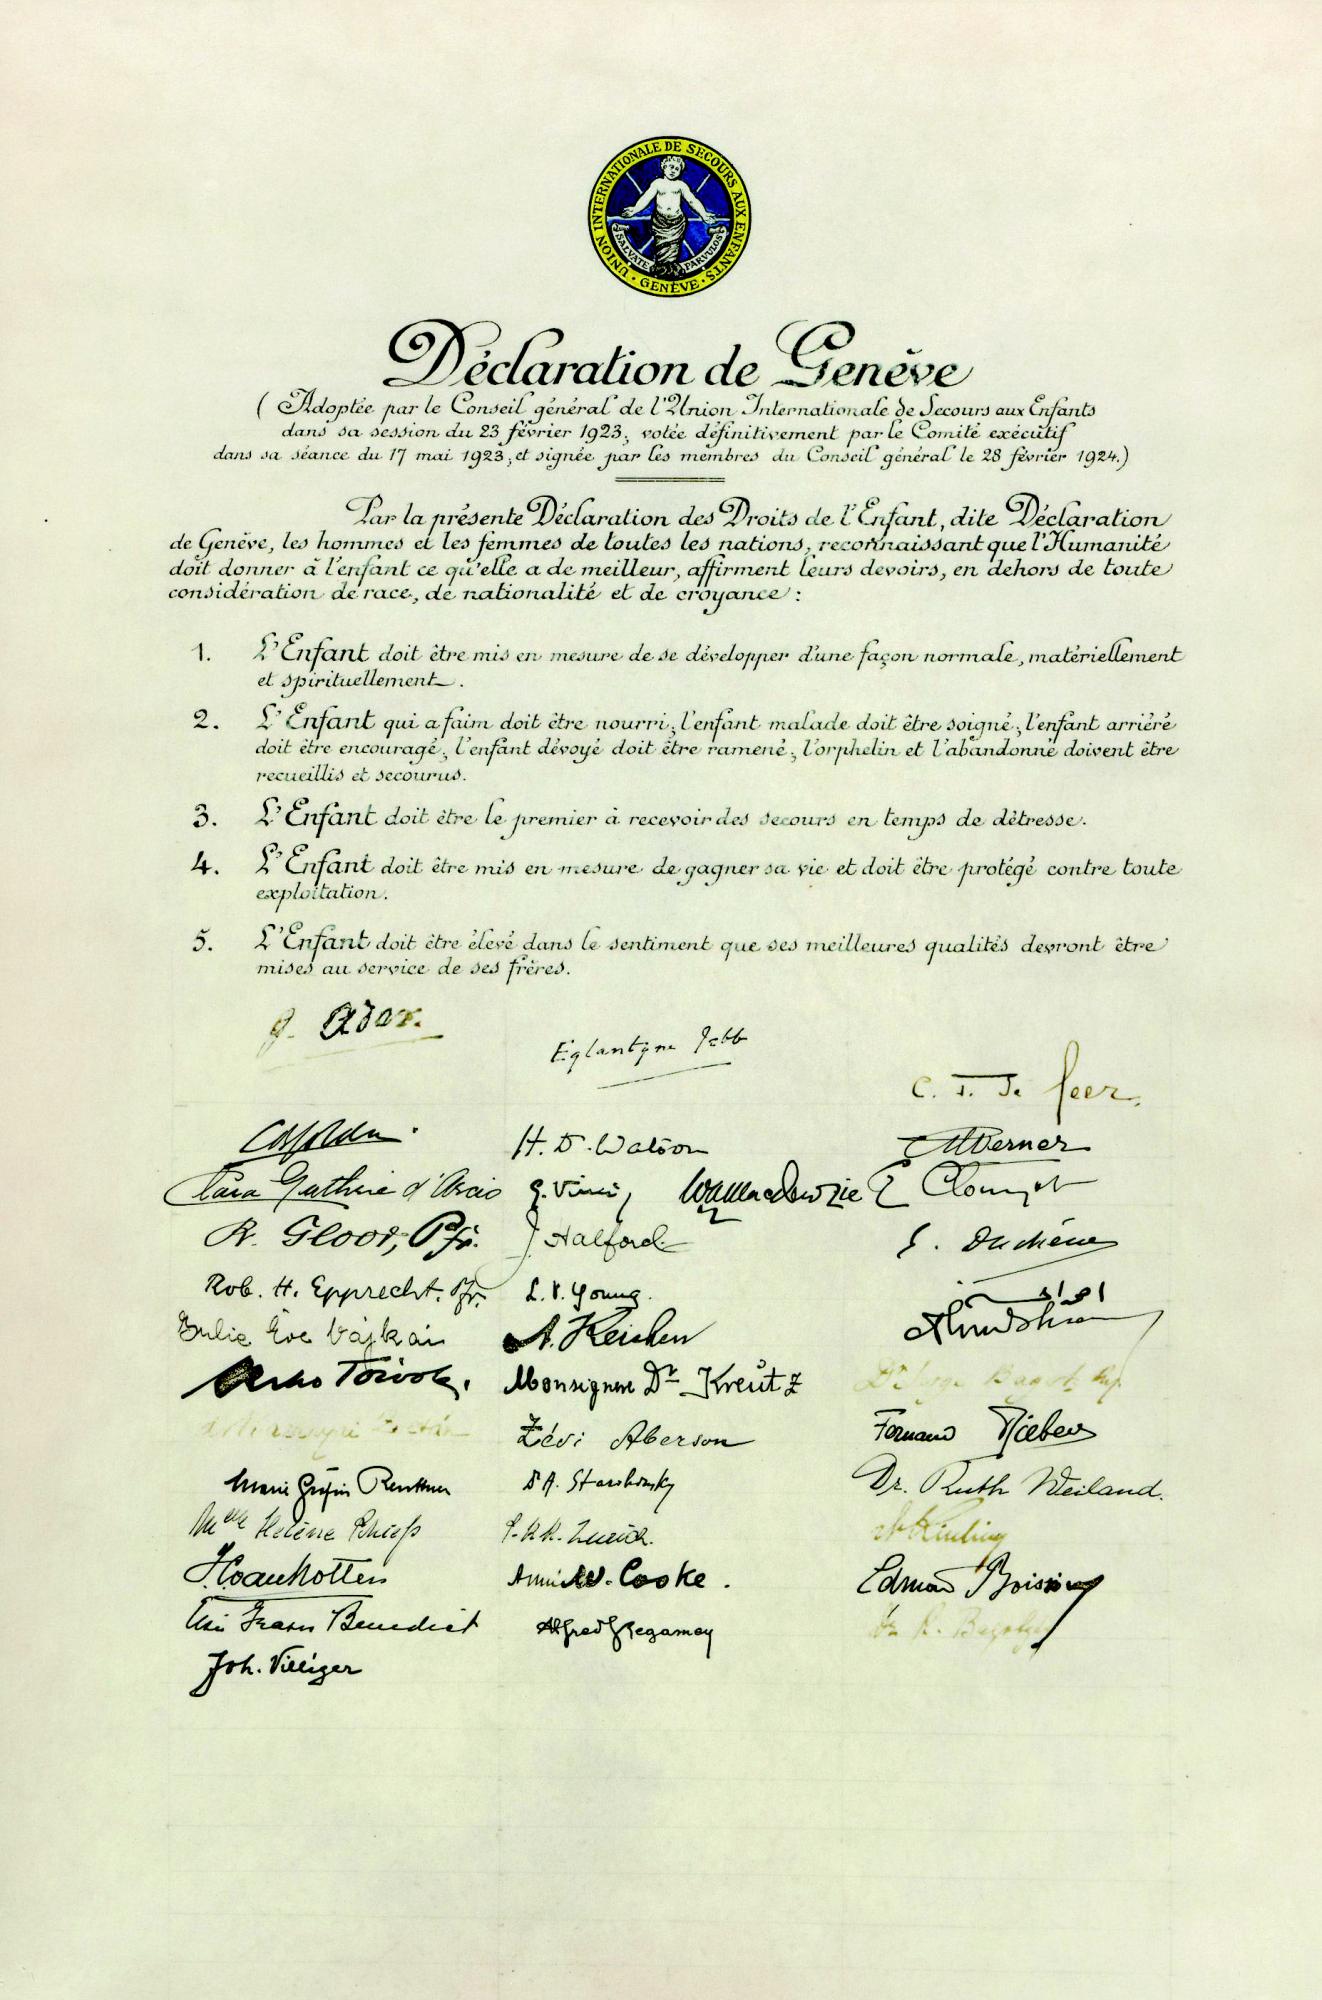 UNION INTERNATIONALE DE SECOURS AUX ENFANTS · GENÈVE ·
SALVATE PARVULOS
Déclaration de Genève
( Adoptée par le Conseil général de l'Union Internationale de Secours aux Enfants
dans sa session du 23 février 1923, votée définitivement par le Comité exécutif
dans sa séance du 17 mai 1923, et signée par les membres du Conseil général le 28 février 1924.)
Par la présente Déclaration des Droits de l'Enfant, dite Déclaration
de Genève, les hommes et les femmes de toutes les nations, reconnaissant que l'Humanité
doit donner à l'enfant ce qu'elle a de meilleur, affirment leurs devoirs, en dehors de toute
considération de race, de nationalité et de croyance :
1. L'Enfant doit être mis en mesure de se développer d'une façon normale, matériellement
et spirituellement.
2. L'Enfant qui a faim doit être nourri ; l'enfant malade doit être soigné ; l'enfant arriéré
doit être encouragé ; l'enfant dévoyé doit être ramené ; l'orphelin et l'abandonné doivent être
recueillis et secourus.
3. L'Enfant doit être le premier à recevoir des secours en temps de détresse.
4. L'Enfant doit être mis en mesure de gagner sa vie et doit être protégé contre toute
exploitation.
5. L'Enfant doit être élevé dans le sentiment que ses meilleures qualités devront être
mises au service de ses frères.
G. Ador.
Eglantyne Jebb
H. D. Watson
Werner
Clara Guthrie d'Arcis
E Clouzot
R. Gloor, Pfr.
J Halford
Rob. H. Epprecht. Pfr.
L. V. Young.
Julie Eve Vajkai
Monsignore Dr Kreutz
Zévi Aberson
Fernand
Marie
Dr. Ruth Weiland.
Mme Hélène
Cooke.
Edmond Boissier
Benedict
Alfred Regamey
Joh. Villiger